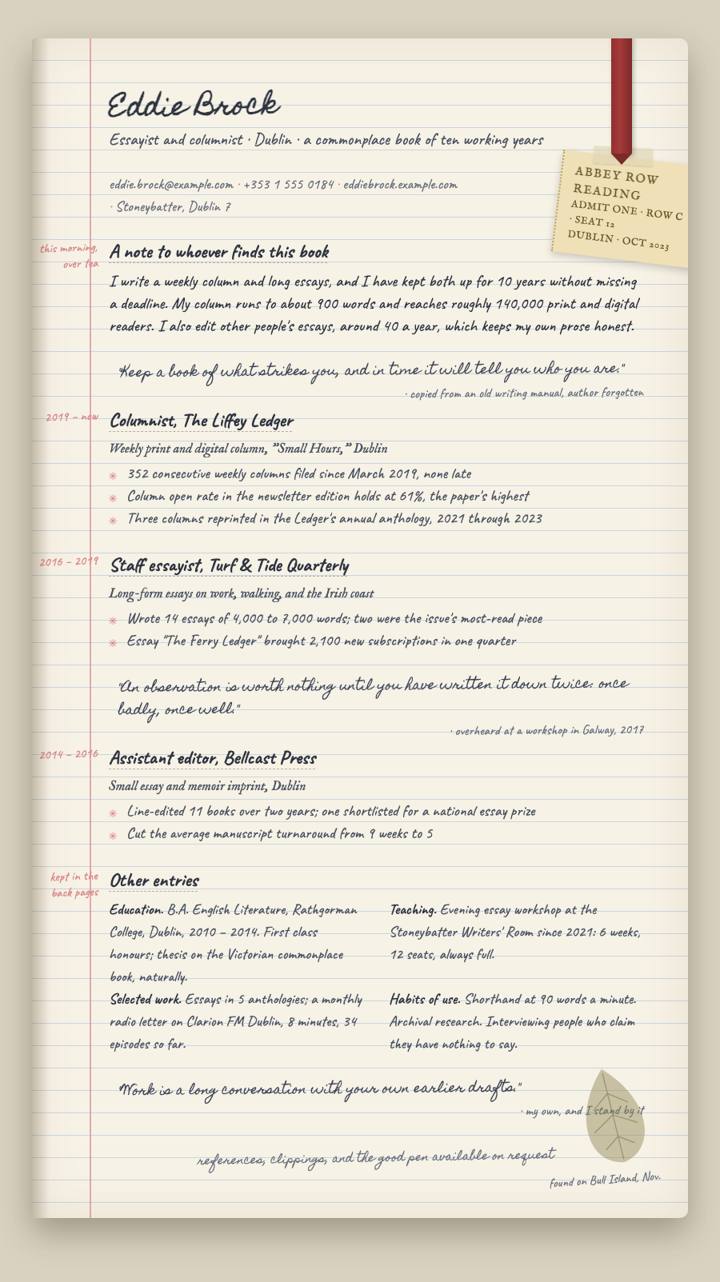 Eddie Brock
Essayist and columnist · Dublin · a commonplace book of ten working years
eddie.brock@example.com · +353 1 555 0184 · eddiebrock.example.com
· Stoneybatter, Dublin 7
ABBEY ROW
READING
ADMIT ONE · ROW C
· SEAT 12
DUBLIN · OCT 2023
this morning,
over tea
A note to whoever finds this book
I write a weekly column and long essays, and I have kept both up for 10 years without missing
a deadline. My column runs to about 900 words and reaches roughly 140,000 print and digital
readers. I also edit other people's essays, around 40 a year, which keeps my own prose honest.
"Keep a book of what strikes you, and in time it will tell you who you are."
· copied from an old writing manual, author forgotten
2019 – now
Columnist, The Liffey Ledger
Weekly print and digital column, ”Small Hours,” Dublin
352 consecutive weekly columns filed since March 2019, none late
Column open rate in the newsletter edition holds at 61%, the paper's highest
Three columns reprinted in the Ledger's annual anthology, 2021 through 2023
2016 – 2019
Staff essayist, Turf & Tide Quarterly
Long-form essays on work, walking, and the Irish coast
Wrote 14 essays of 4,000 to 7,000 words; two were the issue's most-read piece
Essay "The Ferry Ledger" brought 2,100 new subscriptions in one quarter
"An observation is worth nothing until you have written it down twice: once
badly, once well."
· overheard at a workshop in Galway, 2017
2014 – 2016
Assistant editor, Bellcast Press
Small essay and memoir imprint, Dublin
Line-edited 11 books over two years; one shortlisted for a national essay prize
Cut the average manuscript turnaround from 9 weeks to 5
kept in the
back pages
Other entries
Education. B.A. English Literature, Rathgorman
College, Dublin, 2010 – 2014. First class
honours; thesis on the Victorian commonplace
book, naturally.
Teaching. Evening essay workshop at the
Stoneybatter Writers' Room since 2021: 6 weeks,
12 seats, always full.
Selected work. Essays in 5 anthologies; a monthly
radio letter on Clarion FM Dublin, 8 minutes, 34
episodes so far.
Habits of use. Shorthand at 90 words a minute.
Archival research. Interviewing people who claim
they have nothing to say.
"Work is a long conversation with your own earlier drafts."
· my own, and I stand by it
references, clippings, and the good pen available on request
found on Bull Island, Nov.